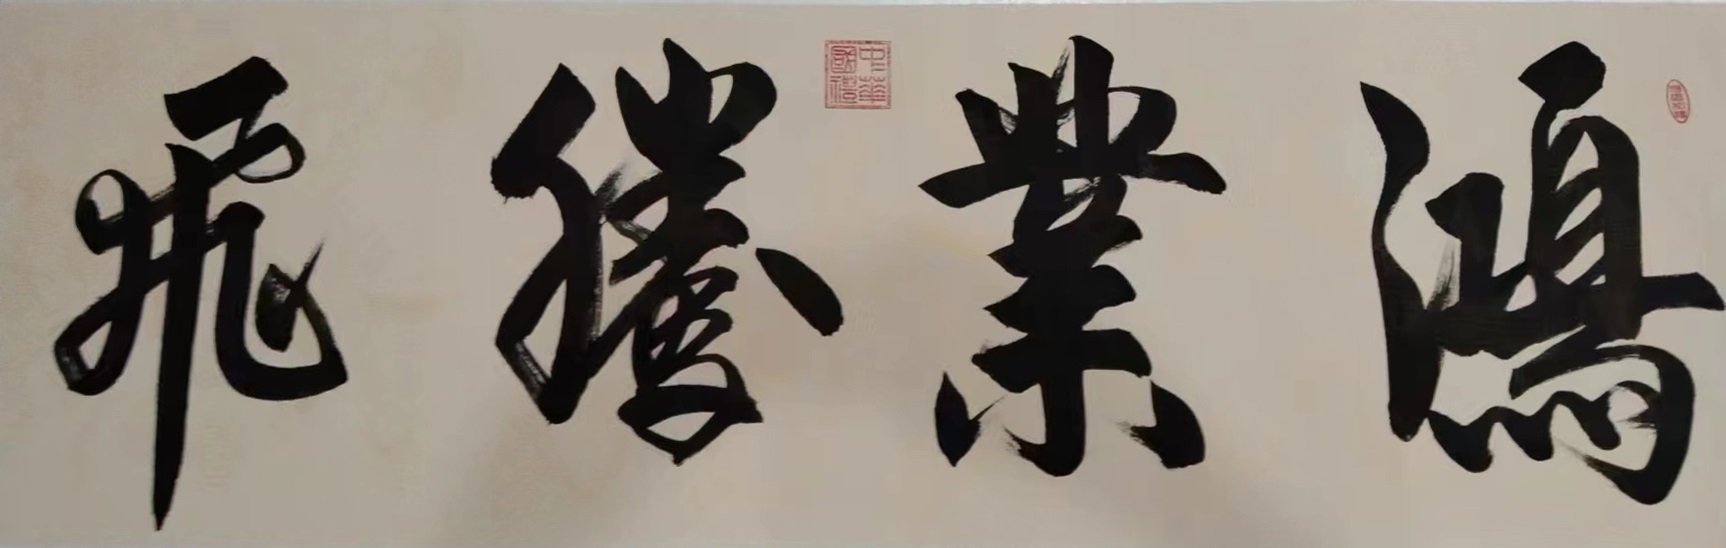 鴻業騰飛
中華
國禮